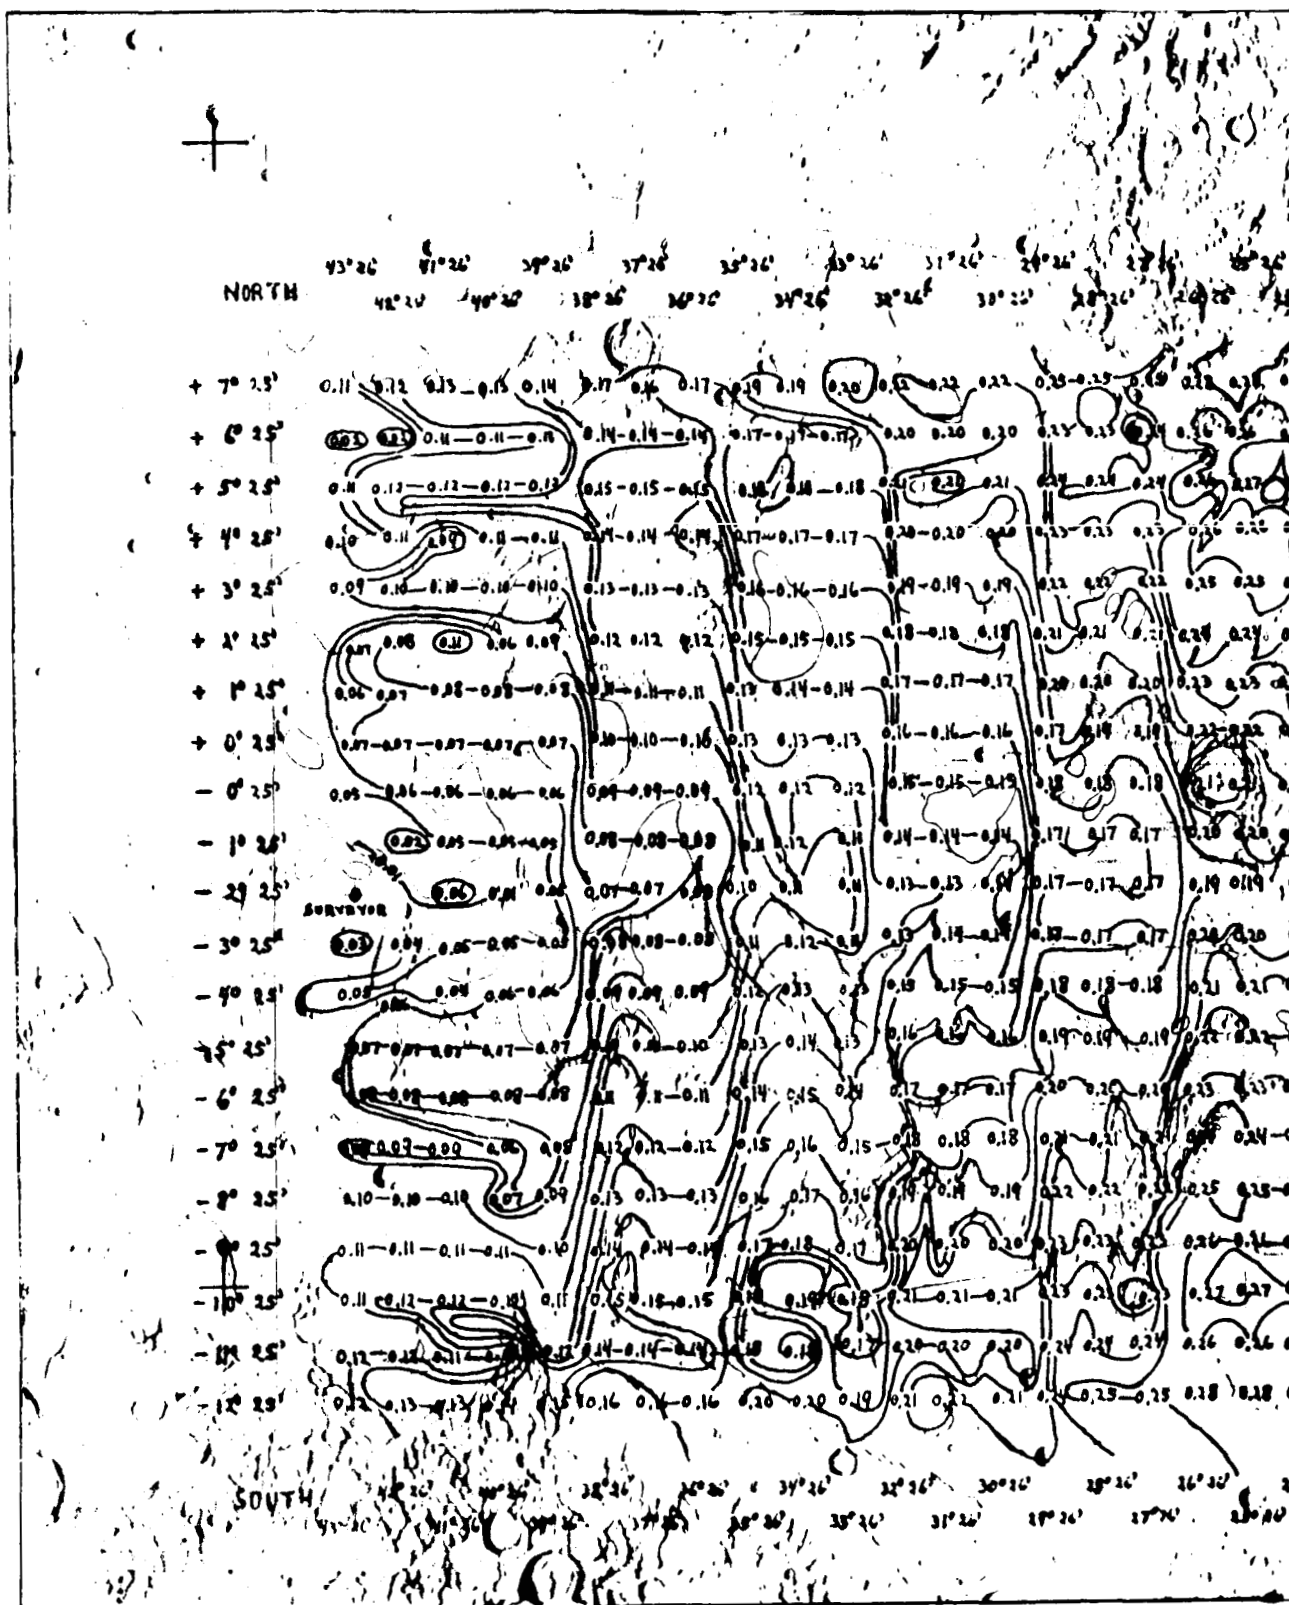 43°26' 41°26' 39°26' 37°26' 35°26' 33°26' 31°26' 29°26' 27°26' 25°26'
NORTH 42°26' 40°26' 38°26' 36°26' 34°26' 32°26' 30°26' 28°26' 26°26'
+ 7° 25' 0.11 0.12 0.13 0.13 0.14 0.17 0.16 0.17 0.19 0.19 0.20 0.22 0.22 0.22 0.25 0.25 0.25 0.28 0.28
+ 6° 25' 0.11 0.11 0.14 0.14 0.14 0.17 0.17 0.20 0.20 0.20 0.23 0.23 0.26 0.26
+ 5° 25' 0.11 0.12 0.12 0.12 0.12 0.15 0.15 0.15 0.18 0.18 0.18 0.21 0.21 0.21 0.24 0.24 0.24 0.27
+ 4° 25' 0.10 0.11 0.09 0.11 0.11 0.14 0.14 0.14 0.17 0.17 0.17 0.20 0.20 0.20 0.23 0.23 0.23 0.26 0.26
+ 3° 25' 0.09 0.10 0.10 0.10 0.10 0.13 0.13 0.13 0.16 0.16 0.16 0.19 0.19 0.19 0.22 0.22 0.22 0.25 0.25
+ 2° 25' 0.07 0.08 0.11 0.06 0.09 0.12 0.12 0.12 0.15 0.15 0.15 0.18 0.18 0.18 0.21 0.21 0.21 0.24 0.24
+ 1° 25' 0.06 0.07 0.08 0.08 0.08 0.11 0.11 0.11 0.13 0.14 0.14 0.17 0.17 0.17 0.20 0.20 0.20 0.23 0.23
+ 0° 25' 0.07 0.07 0.07 0.07 0.07 0.10 0.10 0.10 0.13 0.13 0.13 0.16 0.16 0.16 0.17 0.19 0.19 0.22 0.22
- 0° 25' 0.05 0.06 0.06 0.06 0.06 0.09 0.09 0.09 0.12 0.12 0.12 0.15 0.15 0.15 0.18 0.18 0.18 0.21
- 1° 25' 0.02 0.05 0.05 0.05 0.08 0.08 0.08 0.11 0.12 0.11 0.14 0.14 0.14 0.17 0.17 0.17 0.20 0.20
- 2° 25' 0.06 0.07 0.07 0.10 0.11 0.11 0.13 0.13 0.17 0.17 0.17 0.19 0.19
SURVEYOR
- 3° 25' 0.03 0.04 0.05 0.05 0.05 0.08 0.08 0.08 0.11 0.12 0.11 0.13 0.14 0.14 0.17 0.17 0.17 0.20 0.20
- 4° 25' 0.05 0.06 0.04 0.06 0.06 0.09 0.09 0.09 0.12 0.13 0.13 0.15 0.15 0.15 0.18 0.18 0.18 0.21 0.21
- 5° 25' 0.07 0.07 0.07 0.07 0.07 0.10 0.13 0.14 0.13 0.16 0.16 0.16 0.19 0.19 0.19 0.22 0.22
- 6° 25' 0.08 0.08 0.08 0.08 0.08 0.11 0.11 0.11 0.14 0.15 0.14 0.17 0.17 0.17 0.20 0.20 0.20 0.23 0.23
- 7° 25' 0.09 0.06 0.08 0.12 0.12 0.12 0.15 0.16 0.15 0.18 0.18 0.18 0.21 0.21 0.21 0.24
- 8° 25' 0.10 0.10 0.10 0.07 0.09 0.13 0.13 0.13 0.16 0.17 0.16 0.19 0.19 0.19 0.22 0.22 0.22 0.25 0.25
- 9° 25' 0.11 0.11 0.11 0.11 0.10 0.14 0.14 0.14 0.17 0.18 0.17 0.20 0.20 0.20 0.23 0.23 0.23 0.26 0.26
- 10° 25' 0.11 0.12 0.12 0.10 0.11 0.15 0.15 0.15 0.18 0.19 0.18 0.21 0.21 0.21 0.23 0.23 0.23 0.27 0.27
- 11° 25' 0.12 0.12 0.11 0.12 0.14 0.14 0.14 0.18 0.18 0.17 0.20 0.20 0.20 0.24 0.24 0.24 0.26 0.26
- 12° 25' 0.12 0.13 0.13 0.14 0.15 0.16 0.16 0.16 0.20 0.20 0.19 0.21 0.22 0.21 0.24 0.25 0.25 0.28 0.28
SOUTH 42°26' 40°26' 38°26' 36°26' 34°26' 32°26' 30°26' 28°26' 26°26'
43°26' 41°26' 39°26' 37°26' 35°26' 33°26' 31°26' 29°26' 27°26' 25°26'